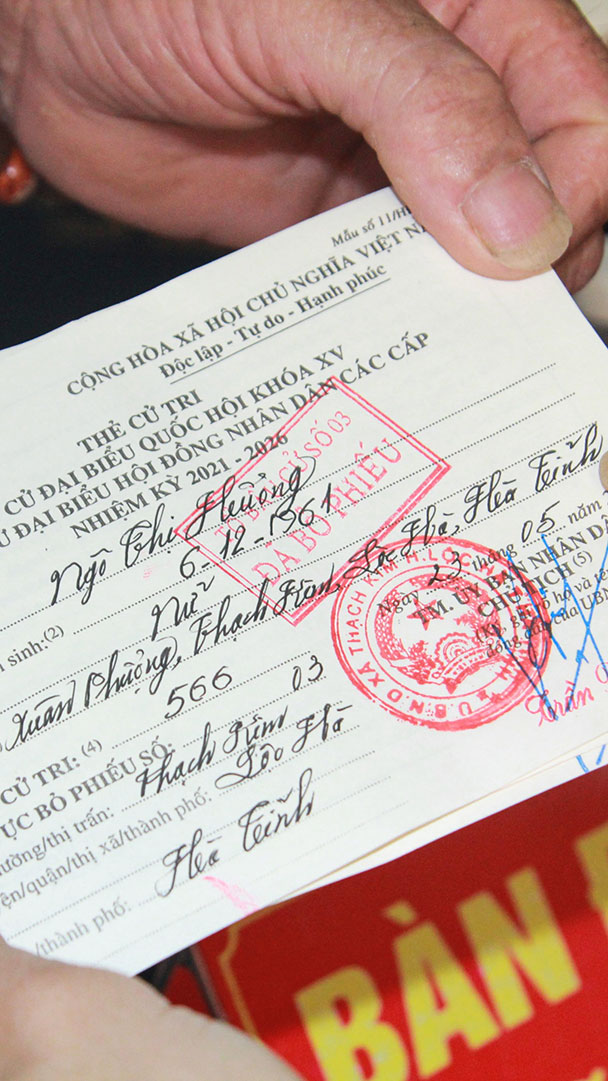 Mẫu số 11/H
CỘNG HÒA XÃ HỘI CHỦ NGHĨA VIỆT NA
Độc lập - Tự do - Hạnh phúc
THẺ CỬ TRI
CỬ ĐẠI BIỂU QUỐC HỘI KHÓA XV
ĐẠI BIỂU HỘI ĐỒNG NHÂN DÂN CÁC CẤP
NHIỆM KỲ 2021 - 2026
TỔ BẦU CỬ SỐ 03
ĐÃ BỎ PHIẾU
Ngô Thị Hưởng
6-12-1961
sinh:(2)
Nữ
Xuân Phượng, Thạch Kim, Lộc Hà, Hà Tĩnh
Ngày 23 tháng 05 năm
TM. ỦY BAN NHÂN DÂ
CHỦ TỊCH (5)
U.B.N.D XÃ THẠCH KIM H. LỘC
Trần
CỬ TRI: (4) 566
ỰC BỎ PHIẾU SỐ: 03
hường/thị trấn: Thạch Kim
ện/quận/thị xã/thành phố: Lộc Hà
/thành phố: Hà Tĩnh
BÀN